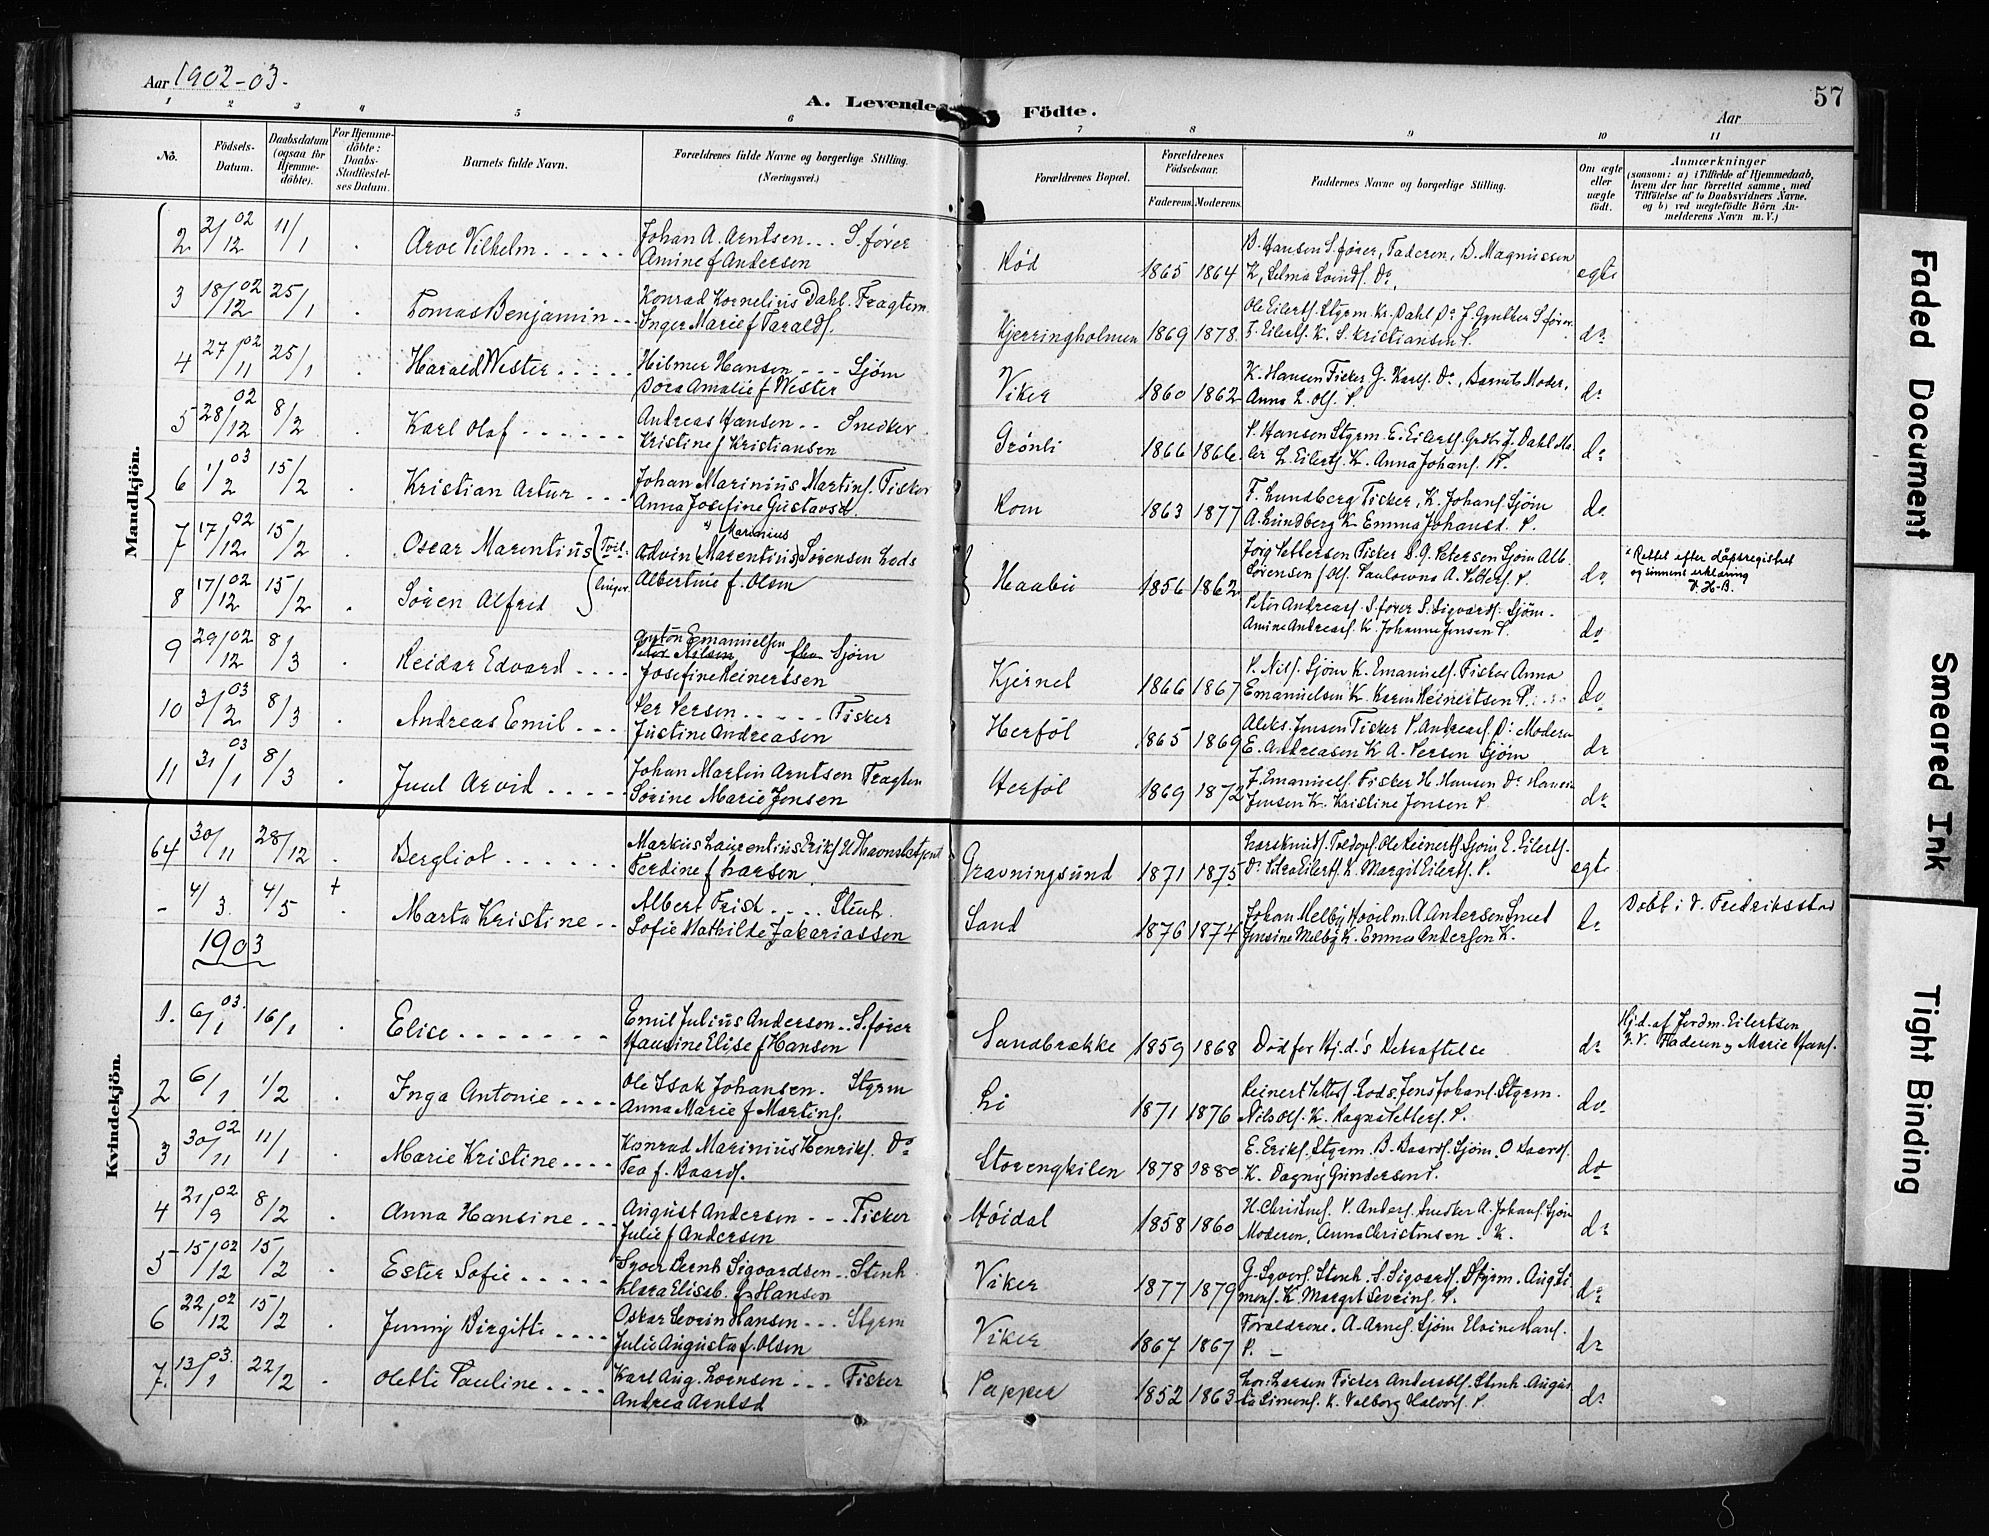 Aar 1902-03.
A. Levende Födte.
57
Aar
1 2 3 4 5 6 7 8 9 10 11
No. Födsels-Datum. Daabsdatum (ogsaa for Hjemmedöbte). For Hjemmedöbte: Daabs-Stadfæstelses Datum. Barnets fulde Navn. Forældrenes fulde Navne og borgerlige Stilling. (Næringsvei.) Forældrenes Bopæl. Forældrenes Födselsaar. Faderens. Moderens. Faddernes Navne og borgerlige Stilling. Om ægte eller uægte födt. Anmærkninger (saasom: a) i Tilfælde af Hjemmedaab, hvem der har forrettet samme, med Tilföielse af to Daabsvidners Navne. og b) ved uægtefödte Börn Anmelderens Navn m. V.)
Mandkjön.
2 2/12 02 11/1 Arve Vilhelm Johan A. Arntsen S.fører
Amine f Andersen
Rød 1865 1864 B. Hansen S.fører, Faderen, B. Magnussen
K, Selma Svends. Do, egte
3 18/12 02 25/1 Tomas Benjamin Konrad Kornelius Dahl. Fragtem
Inger Marie f Taralds.
Kjerringholmen 1869 1878. Ole Eilerts. Styrm Kr. Dahl, Do J. Gynther S.fører
T. Eilerts. K. S. Kristiansen P. do
4 27/11 02 25/1 Harald Wester Hilmer Hansen Sjøm
Dora Amalie f Wester
Viker 1860 1862 K. Hansen Fisker G. Karls. Do, Barnets Moder,
Anna L. Ols. P. do
5 28/12 02 8/2 Karl Olaf Andreas Hansen Snedker
Kristine f Kristiansen
Grønli 1866 1866. P. Hansen Styrm. E. Eilerts. Grdbr J. Dahl Maler L. Eilerts. K. Anna Johans. P. do
6 1/2 03 15/2 Kristian Artur Johan Marinius Martins. Fisker
Anna Josefine Gustavsd.
Rom 1863 1877 F. Lundberg Fisker, K. Johans. Sjøm
A. Lundberg K Emma Johansd. P. do
7 17/12 02 15/2 Oscar Marentius Tvillinger
Marinius
Advin (Marentius) Sørensen Lods
Albertine f. Olsen
Haabu 1856 1862 Jørg Pettersen Fisker S. G. Petersen Sjøm Alb.
Sørensen f Ols. Paulowna A. Petters. P. do
x Rettet efter dåpsregistret
og sinnens erklæring
V. H-B.
8 17/12 02 15/2 Søren Alfred
Peter Andreas. S.fører S. Sigvards. Sjøm.
Amine Andreas. K Johanne Jensen P. do
9 29/12 02 8/3 Reidar Edvard Anton Emanuelsen
Peter Nilsen Sjøm
Josefine Reinertsen
Kjernet 1866 1867 P. Nils. Sjøm K. Emanuels. Fisker Anna
Emanuelsen K Karen Reinertsen P. do
10 3/2 03 8/3 Andreas Emil Per Persen Fisker
Justine Andreasen
Herføl 1865 1869 Aleks. Jensen Fisker P. Andreas. Do Moderen
E. Andreasen K A. Persen Sjøm do
11 31/1 03 8/3 Juul Arvid Johan Martin Arntsen Fragtem
Sørine Marie Jensen
Herføl 1869 1872 J. Emanuels. Fisker H. Hansen Do Hansine
Jensen K. Kristine Jensen P do
Kvindekjön.
64 30/11 28/12 Bergliot Markus Laurentius Eriks. Havnebetjent
Ferdine f Larsen
Gravningsund 1871 1875 Lars Knuds. Ole Reinerts. Sjøm E. Eilerts.
Do Petra Eilerts. K. Margit Eilerts. P. egte
- 4/3. 4/5 + Marta Kristine Albert Frid Stenh.
Sofie Mathilde Zakariassen
Sand 1876 1874 Johan Melby A. Andersen Smed
Jensine Melby K. Emma Anderson K. do Døbt i V. Fredriksstad
1903
1. 6/1 03. 16/1 Elice Emil Julius Anderson S.fører
Hansine Elise f Hansen
Sandbrække 1859 1868 Død før Hj.d.'s Bekræftelse do
Hj.d. af Jordm. Eilertsen,
T. V. Faderen og Marie Hans.
2 6/1 1/2 Inga Antonie Ole Isak Johansen. Styrm
Anna Marie f Martins.
Li 1871 1876 Reinert Petters. Lods. Jens Johans. Styrm.
Nils Ols. K. Ragna Petters. P. do
3 30/11 02 11/1 Marie Kristine Konrad Marinius Henriks. Do
Tea f. Baards.
Storengkilen 1878 1880 E. Eriks. Styrm. B. Baards. Sjøm. O Baards.
K. Dagny Gundersen P. do
4 21/9 02 8/2 Anna Hansine August Andersen Fisker
Julie f Andersen
Høidal 1858 1860 H. Christens. P. Anders. Snedker A. Johans. Sjøm
Moderen, Anna Christensen. K. do
5 15/12 02 15/2 Ester Sofie Syver Bernh Sigvardsen Stenh
Klara Elisab. f. Hansen
Viker 1877 1879 G. Syvers. Stenh. S. Sigvards. Styrm. Aug Simons. K. Margit Severins. P. do
6 22/12 02 15/2 Jenny Birgitte Oskar Severin Hansen Styrm
Julie Augusta f. Olsen
Viker 1867 1867 Forældrene. A. Arnes. Sjøm Elvine Hans.
P. do
7. 13/1 03. 22/2 Oletti Pauline Karl Aug. Lorensen Fisker
Andrea Arntsd
Papper 1852 1863 Lor. Larsen Fisker Anders Ols. Stenh. Augusta Simons. K. Valborg Halvors. P. do
Faded Document
Smeared Ink
Tight Binding